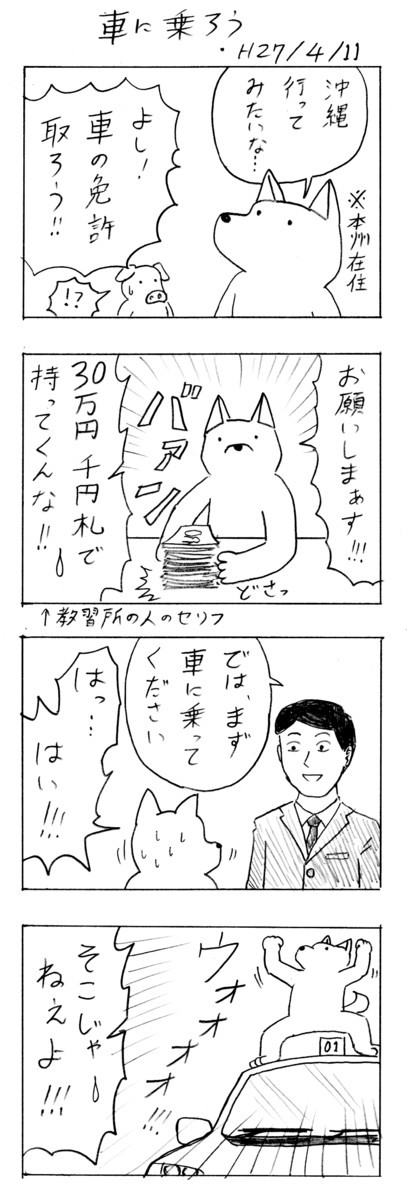 車に乗ろう
・H27/4/11
沖縄
行って
みたいな…
※本州在住
よし!
車の免許
取ろう!!
!?
お願いしまぁす!!!
バァン
どさっ
30万円千円札で
持ってくんな!!
↑教習所の人のセリフ
では、まず
車に乗って
ください
はっ…
はい!!!
ウオオオオ!!!
01
そこじゃ
ねえよ!!!